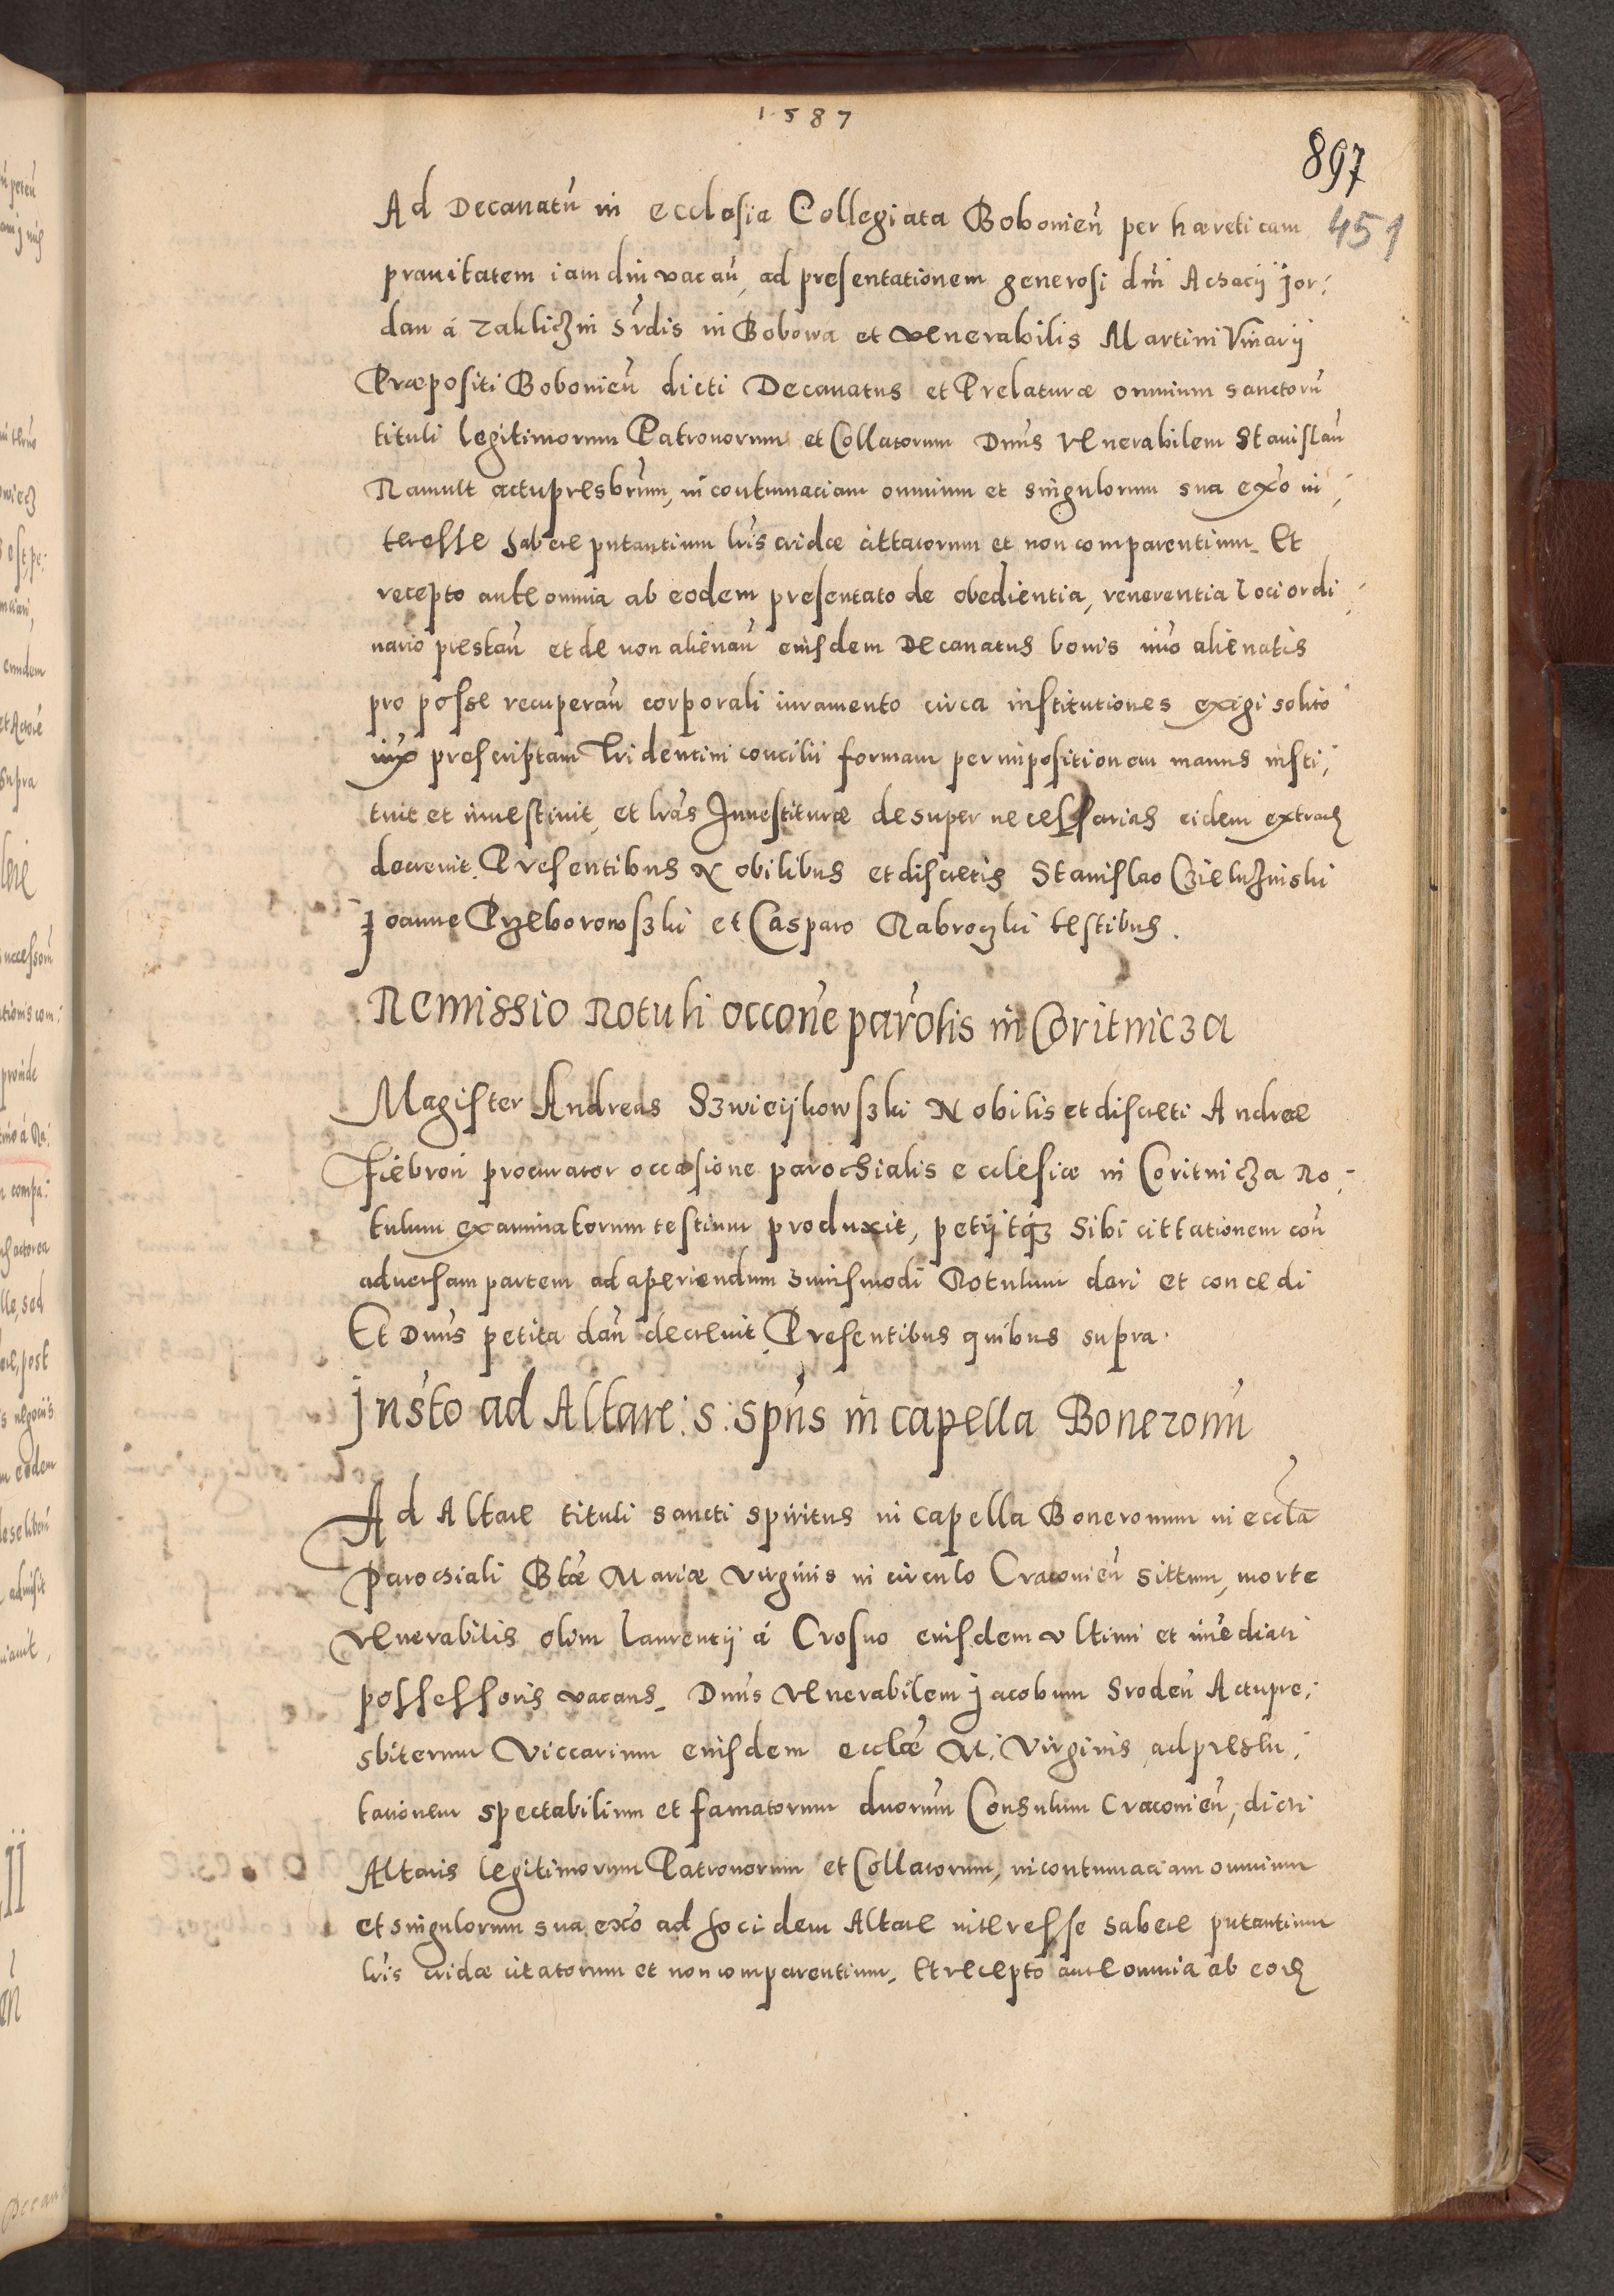 1587
897
451
Ad Decanatũ in ecclesia Collegiata Bobouien̄ per hæreticam
prauitatem iam diu vacan̄, ad presentationem generosi dñi Achacij Jor:
dan á Zakliczin hr̃dis in Bobowa et venerabilis Martini Vinarij
Præpositi Bobouien̄ dicti Decanatus et Prelaturæ omnium sanctorũ
tituli legitimorum Patronorum et Collatorum Dnũs venerabilem Stanislaũ
Ramult actupresbr̃um, in contumaciam omnium et singulorum sua exõ in:
teresse habere putantium lr̃is cridæ cittatorum et non comparentium. Et
recepto ante omnia ab eodem presentato de obedientia, reuerentia loci ordi:
nario prestan̄ et de non alienan̄ eiusdem Decanatus bonis imõ alienatis
pro posse recuperan̄ corporali iuramento circa institutiones exigi solito
iux̃ prescriptam Tridentini concilii formam per impositionem manus insti:
tuit et inuestiuit, et lr̃as Inuestituræ desuper necessarias eidem extradj
decreuit. Presentibus Nobilibus et discretis Stanislao Czieluzinski
Joanne Przeborowszki et Casparo Nabroczki testibus.
Remissio Rotuli occone par̃olis in Coritnicza
Magister Andreas Szwieijkowszki Nobilis et discreti Andreæ
Fiebron procurator occasione parochialis ecclesiæ in Coritnicza Ro:
tulum examinatorum testium produxit, petijtq; sibi cittationem con̄
aduersam partem ad aperiendum huiusmodi Rotulum dari et concedi
Et Dnũs petita dan̄ decreuit. Presentibus quibus supra.
Jnsto ad Altare: S: Spũs in capella Boneronũ
Ad Altare tituli sancti spiritus in capella Boneronum in eccla
parochiali Btæ Mariæ virginis in circulo Cracouien̄ sittum, morte
venerabilis olim Laurentij á Crosno eiusdem vltimi et iñediati
possessoris vacans. Dnũs venerabilem Jacobum Sroden̄ Actupre:
sbiterum Viccarium eiusdem ecclæ M: Virginis, ad presen:
tationem spectabilium et famatorum duorum Consulum Cracouien̄, dicti
Altaris legitimorum Patronorum et Collatorum, in contumaciam omnium
et singulorum sua exõ ad hoc idem Altare interesse habere putantium
lr̃is cridæ citatorum et non comparentium. Et recepto ante omnia ab eodẽ